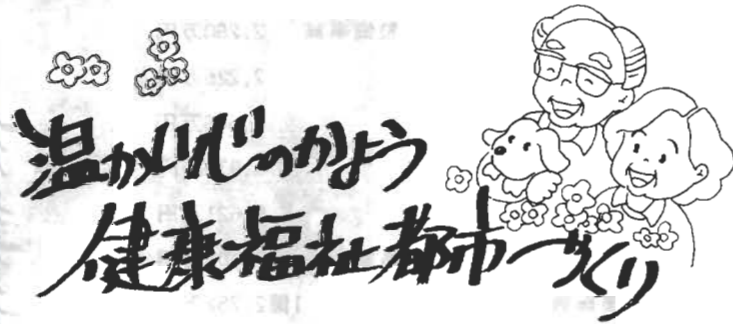 温かい心のかよう
健康福祉都市づくり